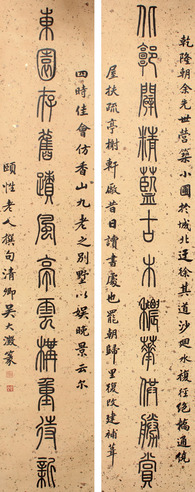 乾隆朝余先世營築小園於城北逕徐其道沙迴水復徑絕橋通繞
北郭闢精藍古木穠華供勝賞
屋扶疏亭榭軒厰昔日讀書處也罷朝歸里復改建補葺
四時佳會仿香山九老之別墅以娛晚景云尔
東園存舊蹟風亭雲構重待新
頤性老人撰句清卿吳大澂篆